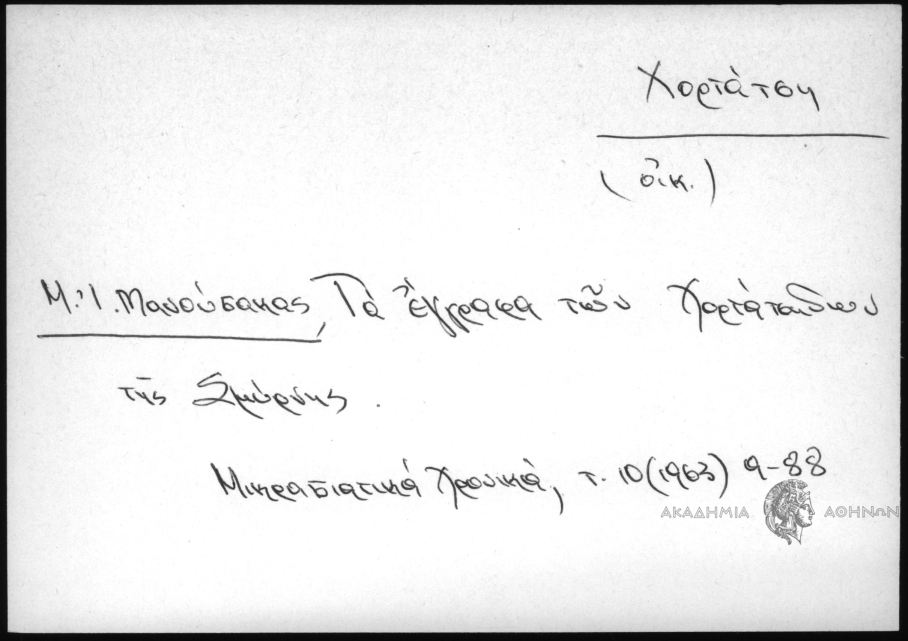 Χορτάτση
(οἰκ.)
Μ. Ἰ. Μανούσακας, Τὰ ἔγγραφα τῶν Χορτάτσιδων
τῆς Σμύρνης.
Μικρασιατικὰ Χρονικὰ, τ. 10 (1963) 9-88
ΑΚΑΔΗΜΙΑ ΑΘΗΝΩΝ